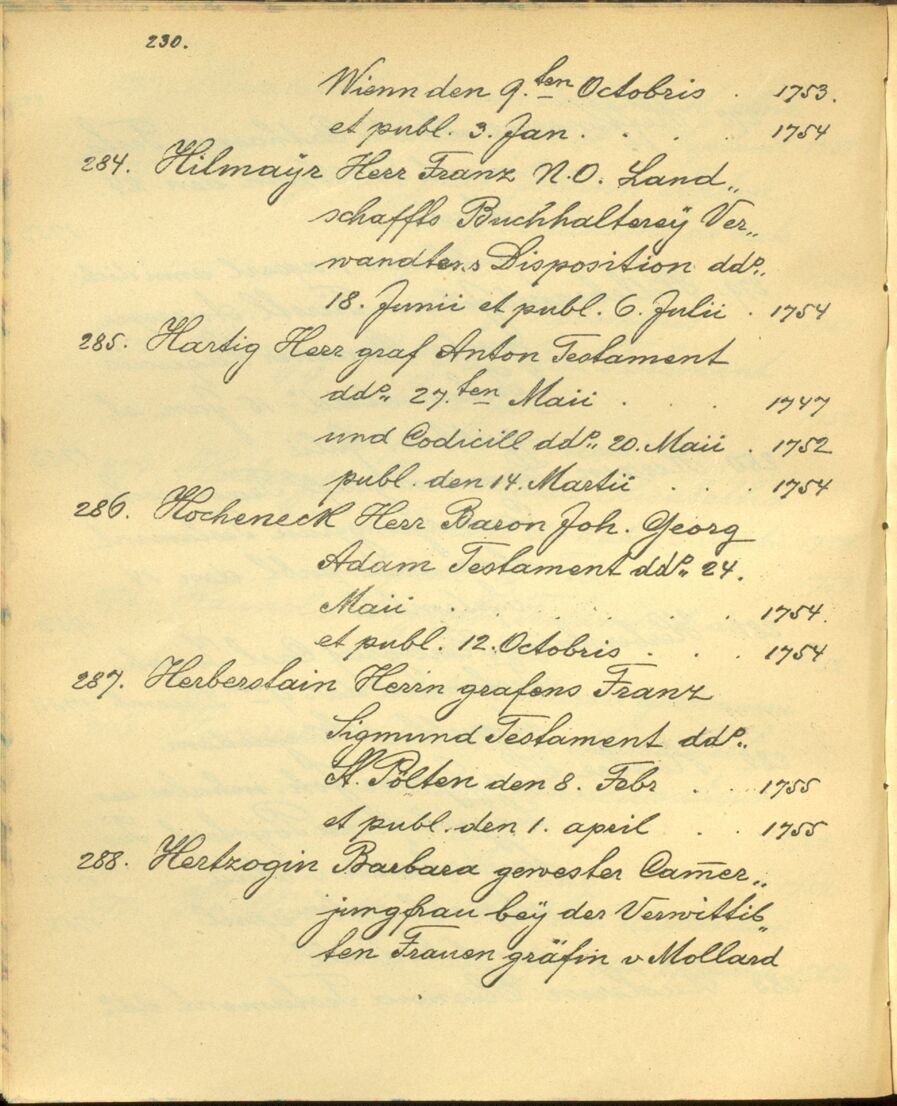 230.
Wienn den 9.ten Octobris . 1753.
et publ. 3. Jan . . . . 1754
284. Hilmaÿr Herr Franz N.O. Land„
schaffts Buchhaltereÿ Ver„
wandtens Disposition ddo„
18. Junii et publ. 6. Julii . 1754
285. Hartig Herr graf Anton Testament
ddo„ 27.ten Maii . . . 1747
und Codicill ddo„ 20. Maii . 1752
publ. den 14. Martii . . . 1754
286. Hocheneck Herr Baron Joh. Georg
Adam Testament ddo„ 24.
Maii . . . . . . . 1754.
et publ. 12. Octobris . . . 1754
287. Herberstain Herrn grafens Franz
Sigmund Testament ddo„
St. Pölten den 8. Febr . . . 1755
et publ. den 1. april . . . 1755
288. Hertzogin Barbara gewester Cam̅er„
jungfrau beÿ der Verwittib„
ten Frauen gräfin v Mollard